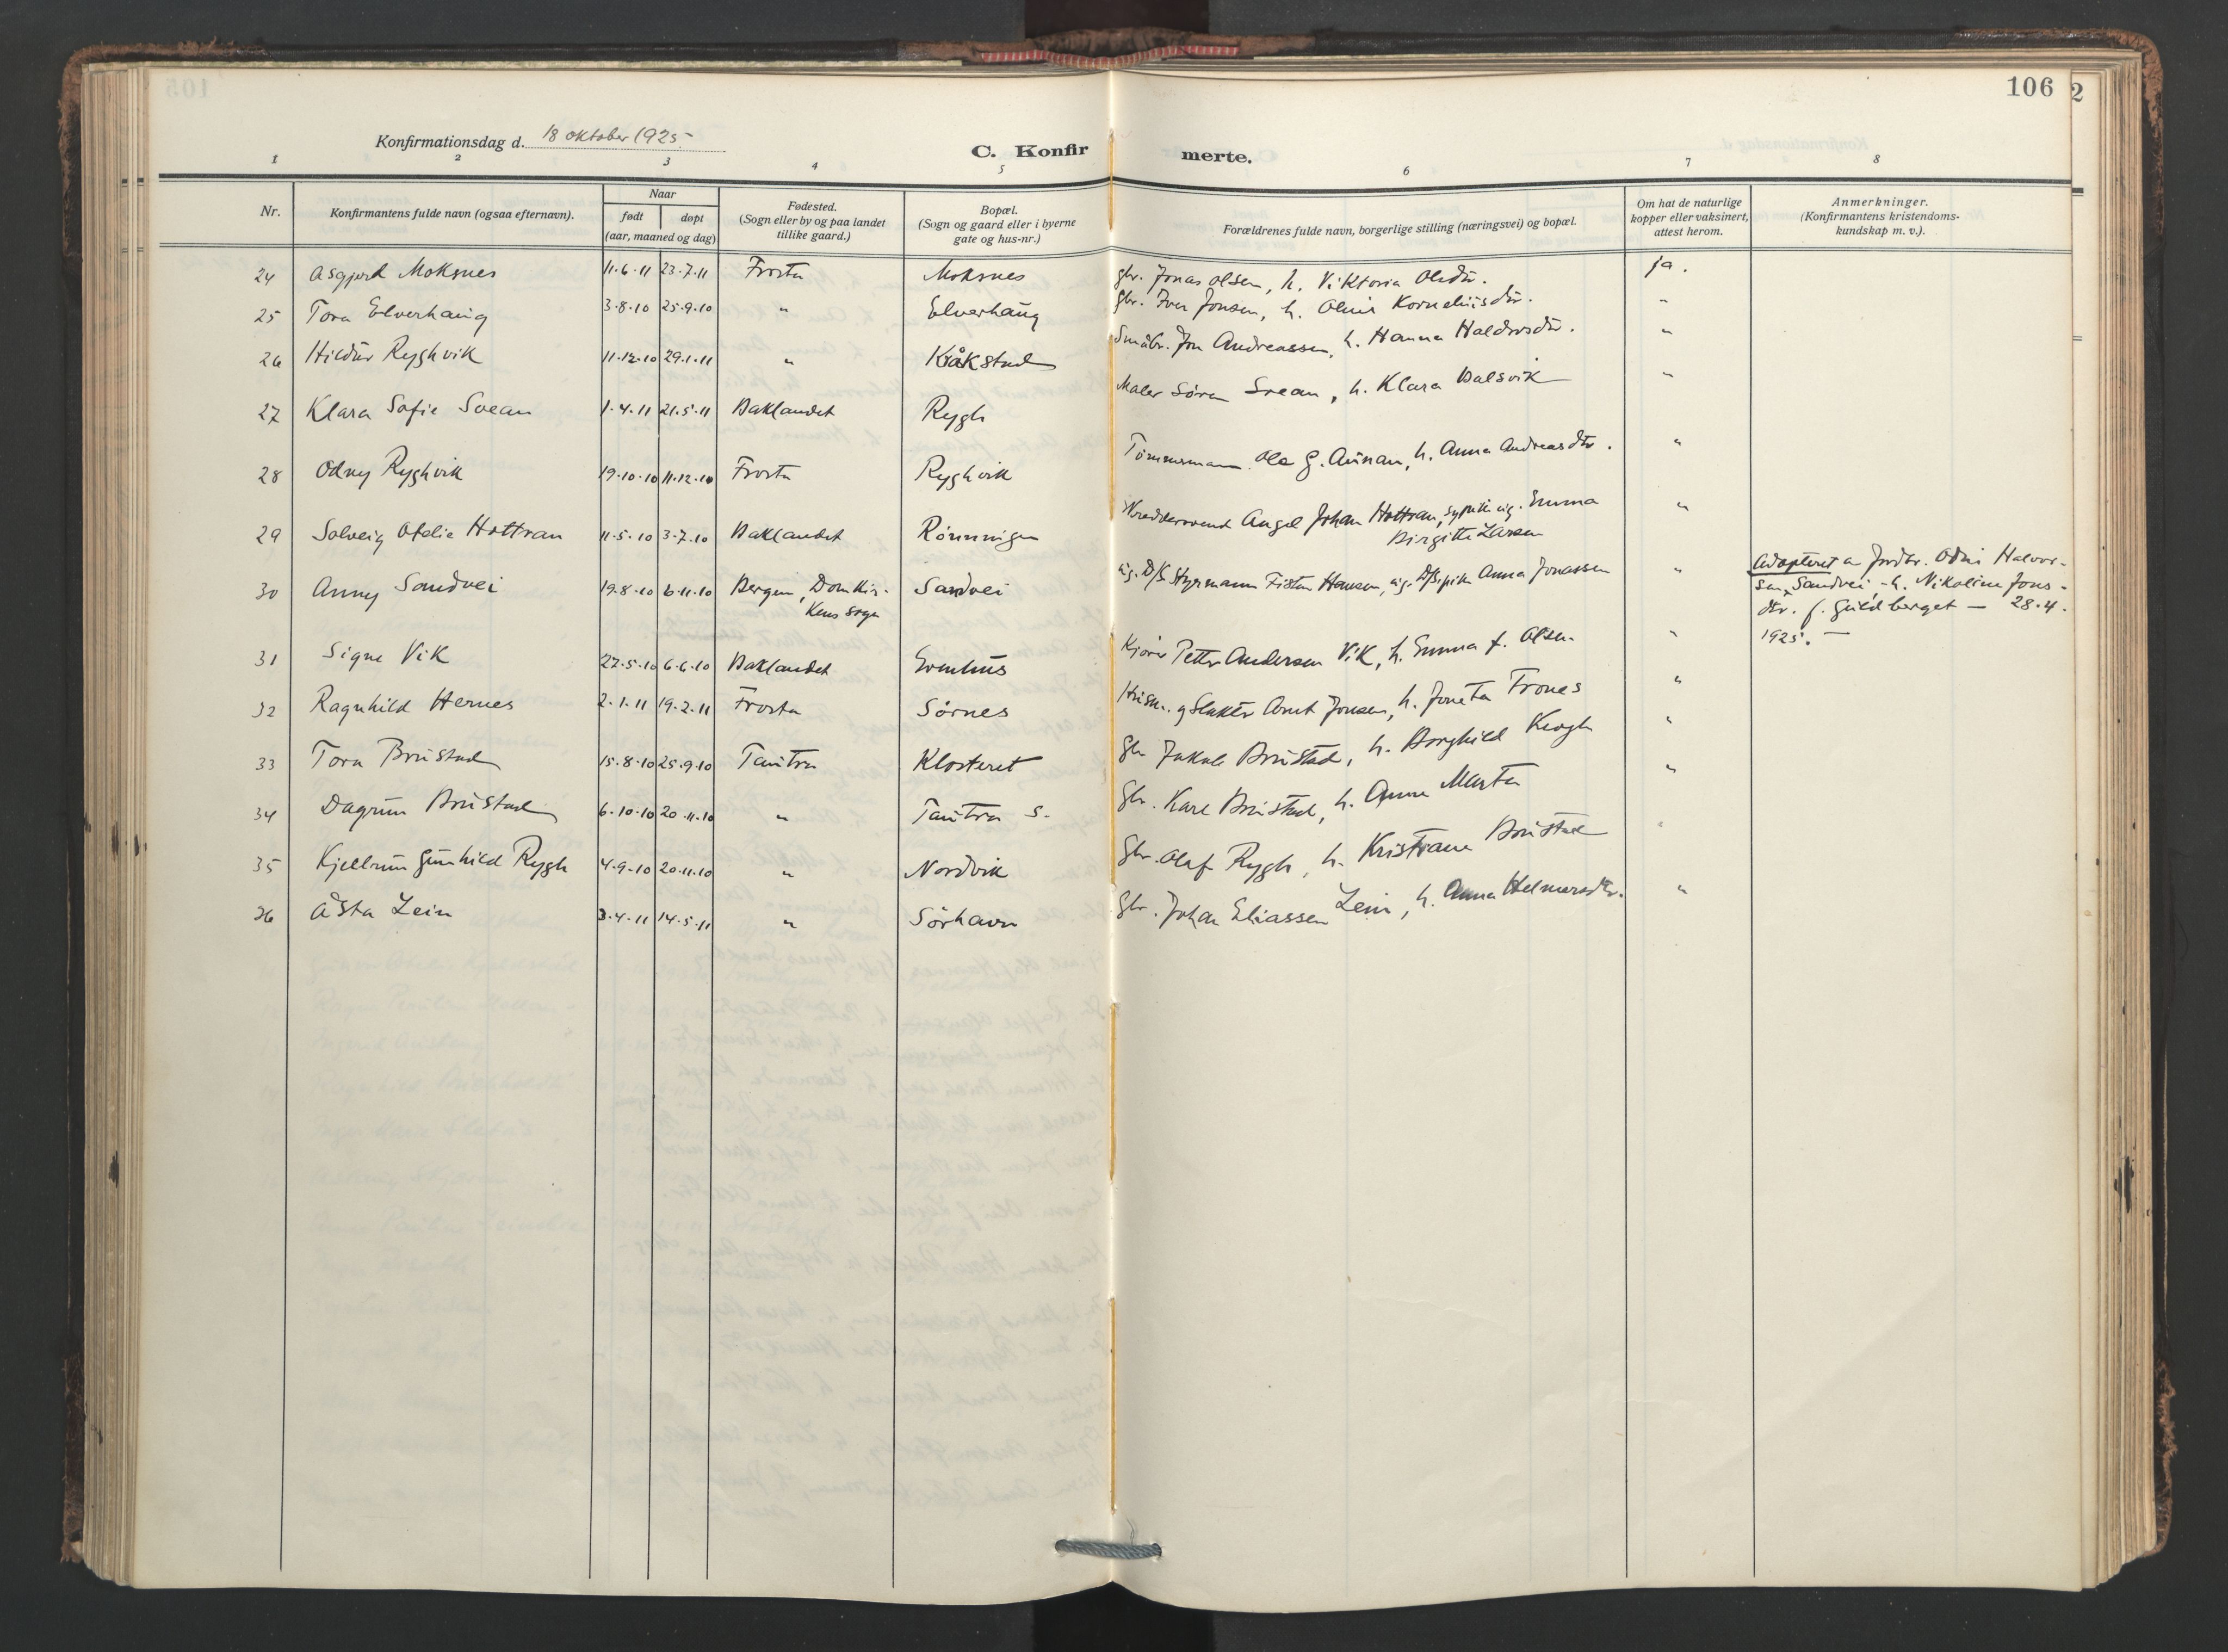 106
2
Konfirmationsdag d. 18 oktober 1925
C. Konfir merte.
1 2 3 4 5 6 7 8
Nr.
Konfirmantens fulde navn (ogsaa efternavn).
Naar
født
døpt
(aar, maaned og dag)
Fødested.
(Sogn eller by og paa landet
tillike gaard.)
Bopæl.
(Sogn og gaard eller i byerne
gate og hus-nr.)
Forældrenes fulde navn, borgerlige stilling (næringsvei) og bopæl.
Om hat de naturlige
kopper eller vaksinert,
attest herom.
Anmerkninger.
(Konfirmantens kristendoms-
kundskap m. v.).
24 Asgjerd Moksnes 11.6.11 23.7.11 Frosta Moksnes gbr. Jonas Olsen, h. Viktoria Olsdtr. ja.
25 Tora Elverhaug 3.8.10 25.9.10 " Elverhaug gbr. Iver Jonsen, h. Oline Korneliusdtr. "
26 Hildur Ryghvik 11.12.10 29.1.11 " Kråkstad Småbr. Jon Andreassen, h. Hanna Haldorsdtr. "
27 Klara Sofie Svean 1.4.11 21.5.11 Baklandet Rygh Maler Sören Svean, h. Klara Dalsvik "
28 Odny Ryghvik 19.10.10 11.12.10 Frosta Ryghvik Tömmermann Ole G. Aunan, h. Anna Andreasdtr. "
29 Solveig Ofelie Hottran 11.5.10 3.7.10 Baklandet Rönningen Skreddersvend Angel Johan Hottran, sypike ug. Emma
Birgitte Larsen "
30 Anny Sandvei 19.8.10 6.11.10 Bergen, Domkir-
kens sogn Sandvei ug. D/S Styrmann Fisten Hansen, ug. D/S pike Anna Jonassen " Adopteret a Jordbr. Odin Halvor-
sen Sandvei - h. Nikoline Jons-
dtr. f. Guldberget — 28.4.
1925. —
31 Signe Vik 27.5.10 6.6.10 Baklandet Evenhus Kjörer Petter Andersen Vik, h. Emma f. Olsen "
32 Ragnhild Hernes 2.1.11 19.2.11 Frosta Sörnes Husm. og Slakter Arnt Jonsen, h. Joneta Frones "
33 Tora Brustad 15.8.10 25.9.10 Tautra Klosteret Gbr Jakob Brustad, h. Borghild Krogh "
34 Dagrun Brustad 6.10.10 20.11.10 " Tautra s. Gbr. Karl Brustad, h. Anna Marta "
35 Kjellrun Gunhild Rygh 4.9.10 20.11.10 " Nordvik Gbr. Olaf Rygh, h. Kristiane Brustad "
36 Åsta Lein 3.4.11 14.5.11 " Sörhavn Gbr. Johan Eliassen Lein, h. Anna Helmersdtr. "